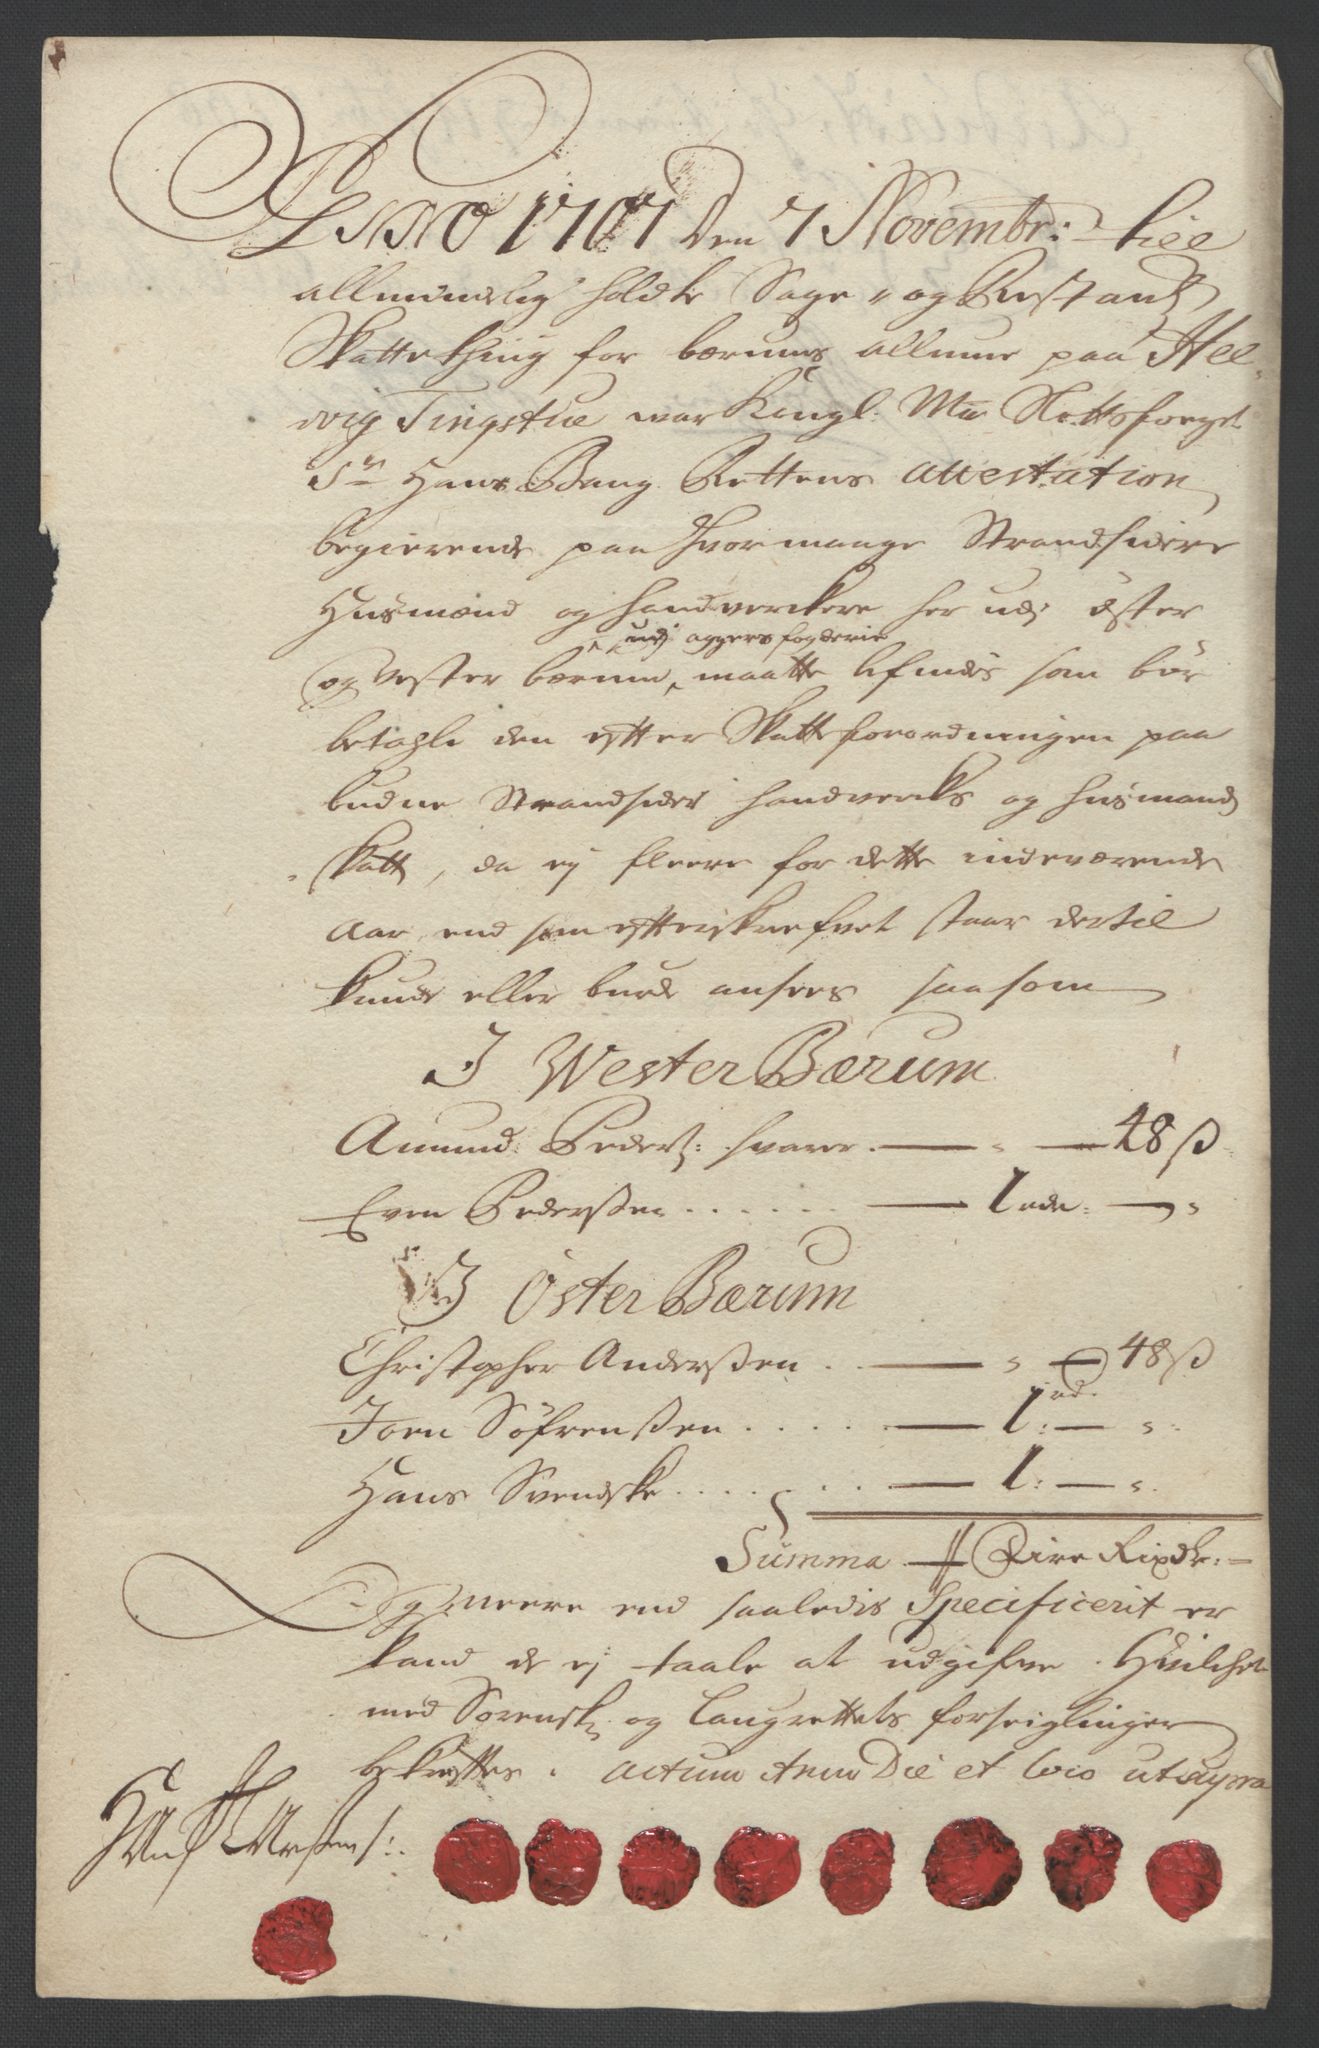 Anno 1707 Den 7 Novembr: — hiee
allmindelig holdte Sage- og Restantz
Skatte thing for bærums allmue paa Hel-
vrig Tingstue war Kongl: Ma Slottsfoeget
Sr Hans Bang Rettens Attestation
begierende paa Hvormange Strandsidere
Husmænd og handverckere her udj Øster
og Vester bærum, udj aggers fogderie maatte befindes som bør
betahle den efter Skatteforordningen paa
budne Strandsider handvercks og Husmands
Skatt, da ej fleere for dette indeværende
Aar, end som efterskrefvet staar dertil
kunde eller burde ansees saasom
I Wester Bærum
Amund Peders: svarer. — " — 48 ß
Even Pederßen . . . . . . — 1 rdr: — "
I Öster Bærum
Christopher Anderßen . . — " — 48 ß
Joen Söfrenßen . . . . . — 1 rd: — ".
Hans Svendske . . . . . . — 1: — ".
Summa — Fire Rixdlr: —
Og meere end saaledis Specificerit er
kand de ej taale at udgifve. Hvilchet
med Sorenskr. og Laugrettets forseiglinger
bekreftes. Actum Anno Die et loco ut supra